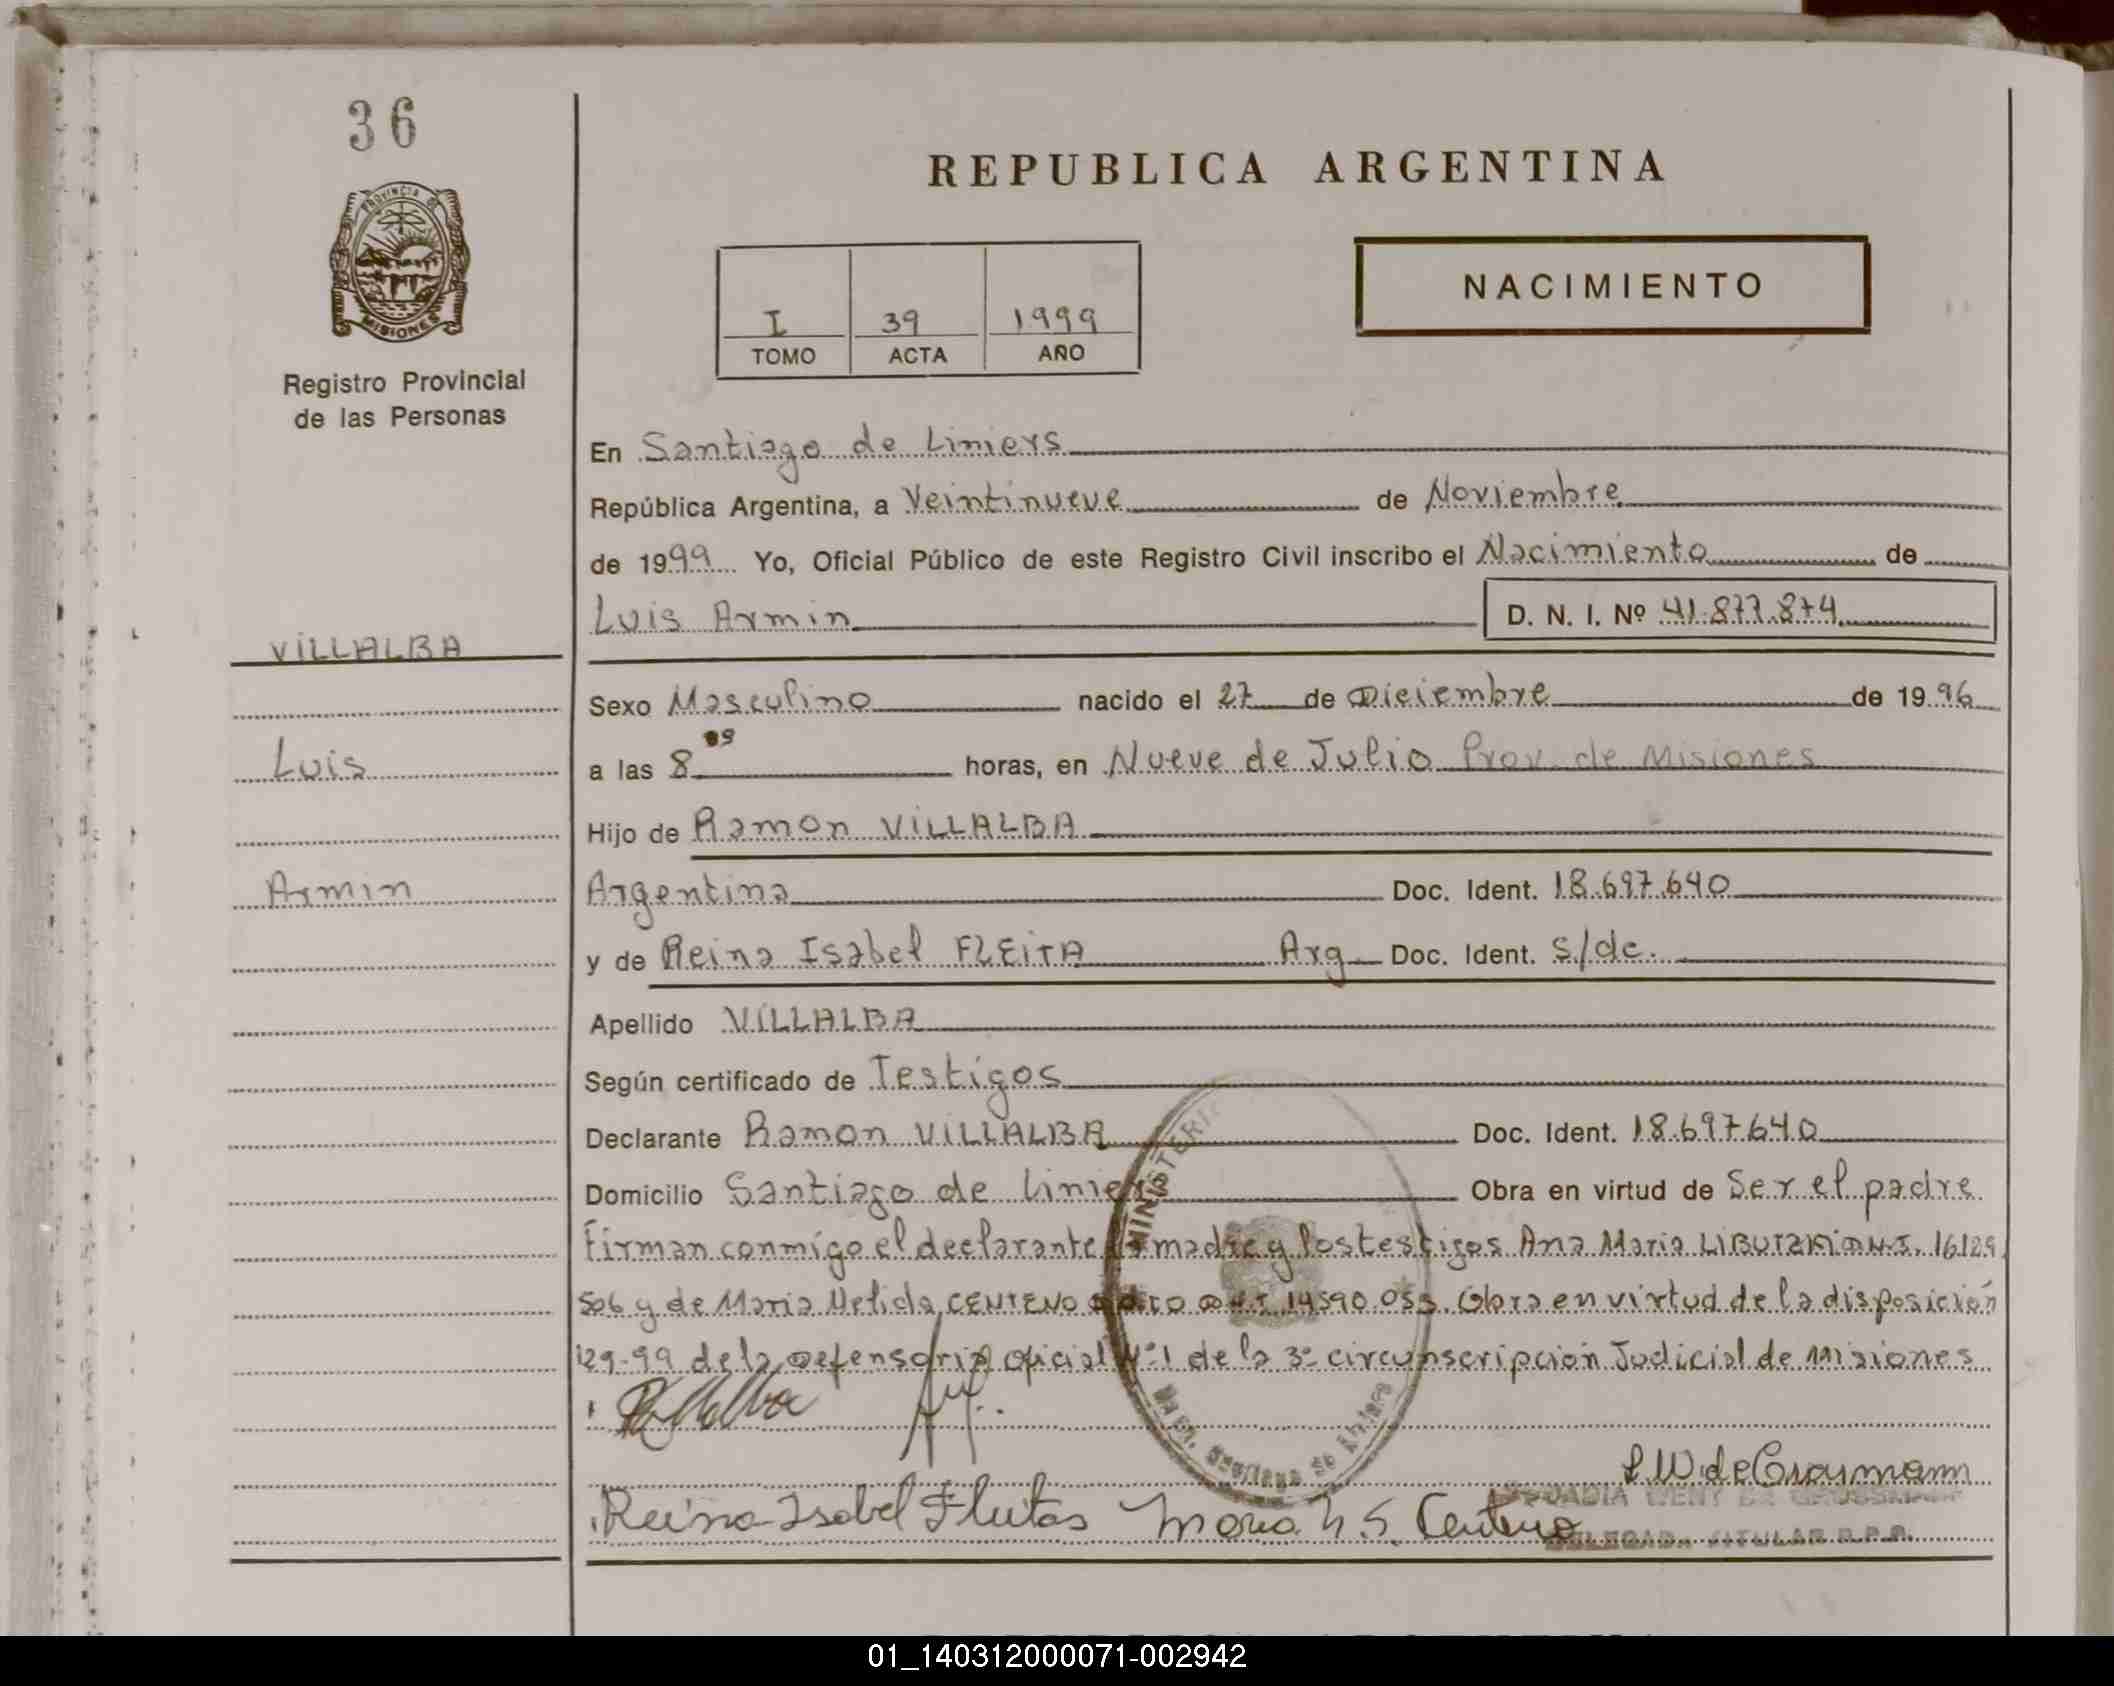 36
PROVINCIA DE
MISIONES
Registro Provincial
de las Personas
VILLALBA
Luis
Armin
REPUBLICA ARGENTINA
NACIMIENTO
I 39 1999
TOMO ACTA AÑO
En Santiago de Liniers
República Argentina, a Veintinueve de Noviembre
de 1999 Yo, Oficial Público de este Registro Civil inscribo el Nacimiento de
Luis Armin D. N. I. Nº 41.877.874
Sexo Masculino nacido el 27 de Diciembre de 1996
a las 8 horas, en Nueve de Julio Prov. de Misiones
Hijo de Ramon VILLALBA
Argentina Doc. Ident. 18.697.640
y de Reina Isabel FLEITA Arg Doc. Ident. s/dc.
Apellido VILLALBA
Según certificado de Testigos
Declarante Ramon VILLALBA Doc. Ident. 18.697640
Domicilio Santiago de Liniers Obra en virtud de Ser el padre
Firman conmigo el declarante la madre y los testigos Ana Maria D.N.I. 16129
506 y de Maria Nelida CENTENO D.N.I 14590 055 Obra en virtud de la disposición
129-99 de la Defensoria Oficial Nº1 de la 3º circunscripción Judicial de Misiones
MINISTERIO
Reina Isabel Fleitas Maria N S Centeno
DELEGADA TITULAR R.P.P.
01_140312000071-002942